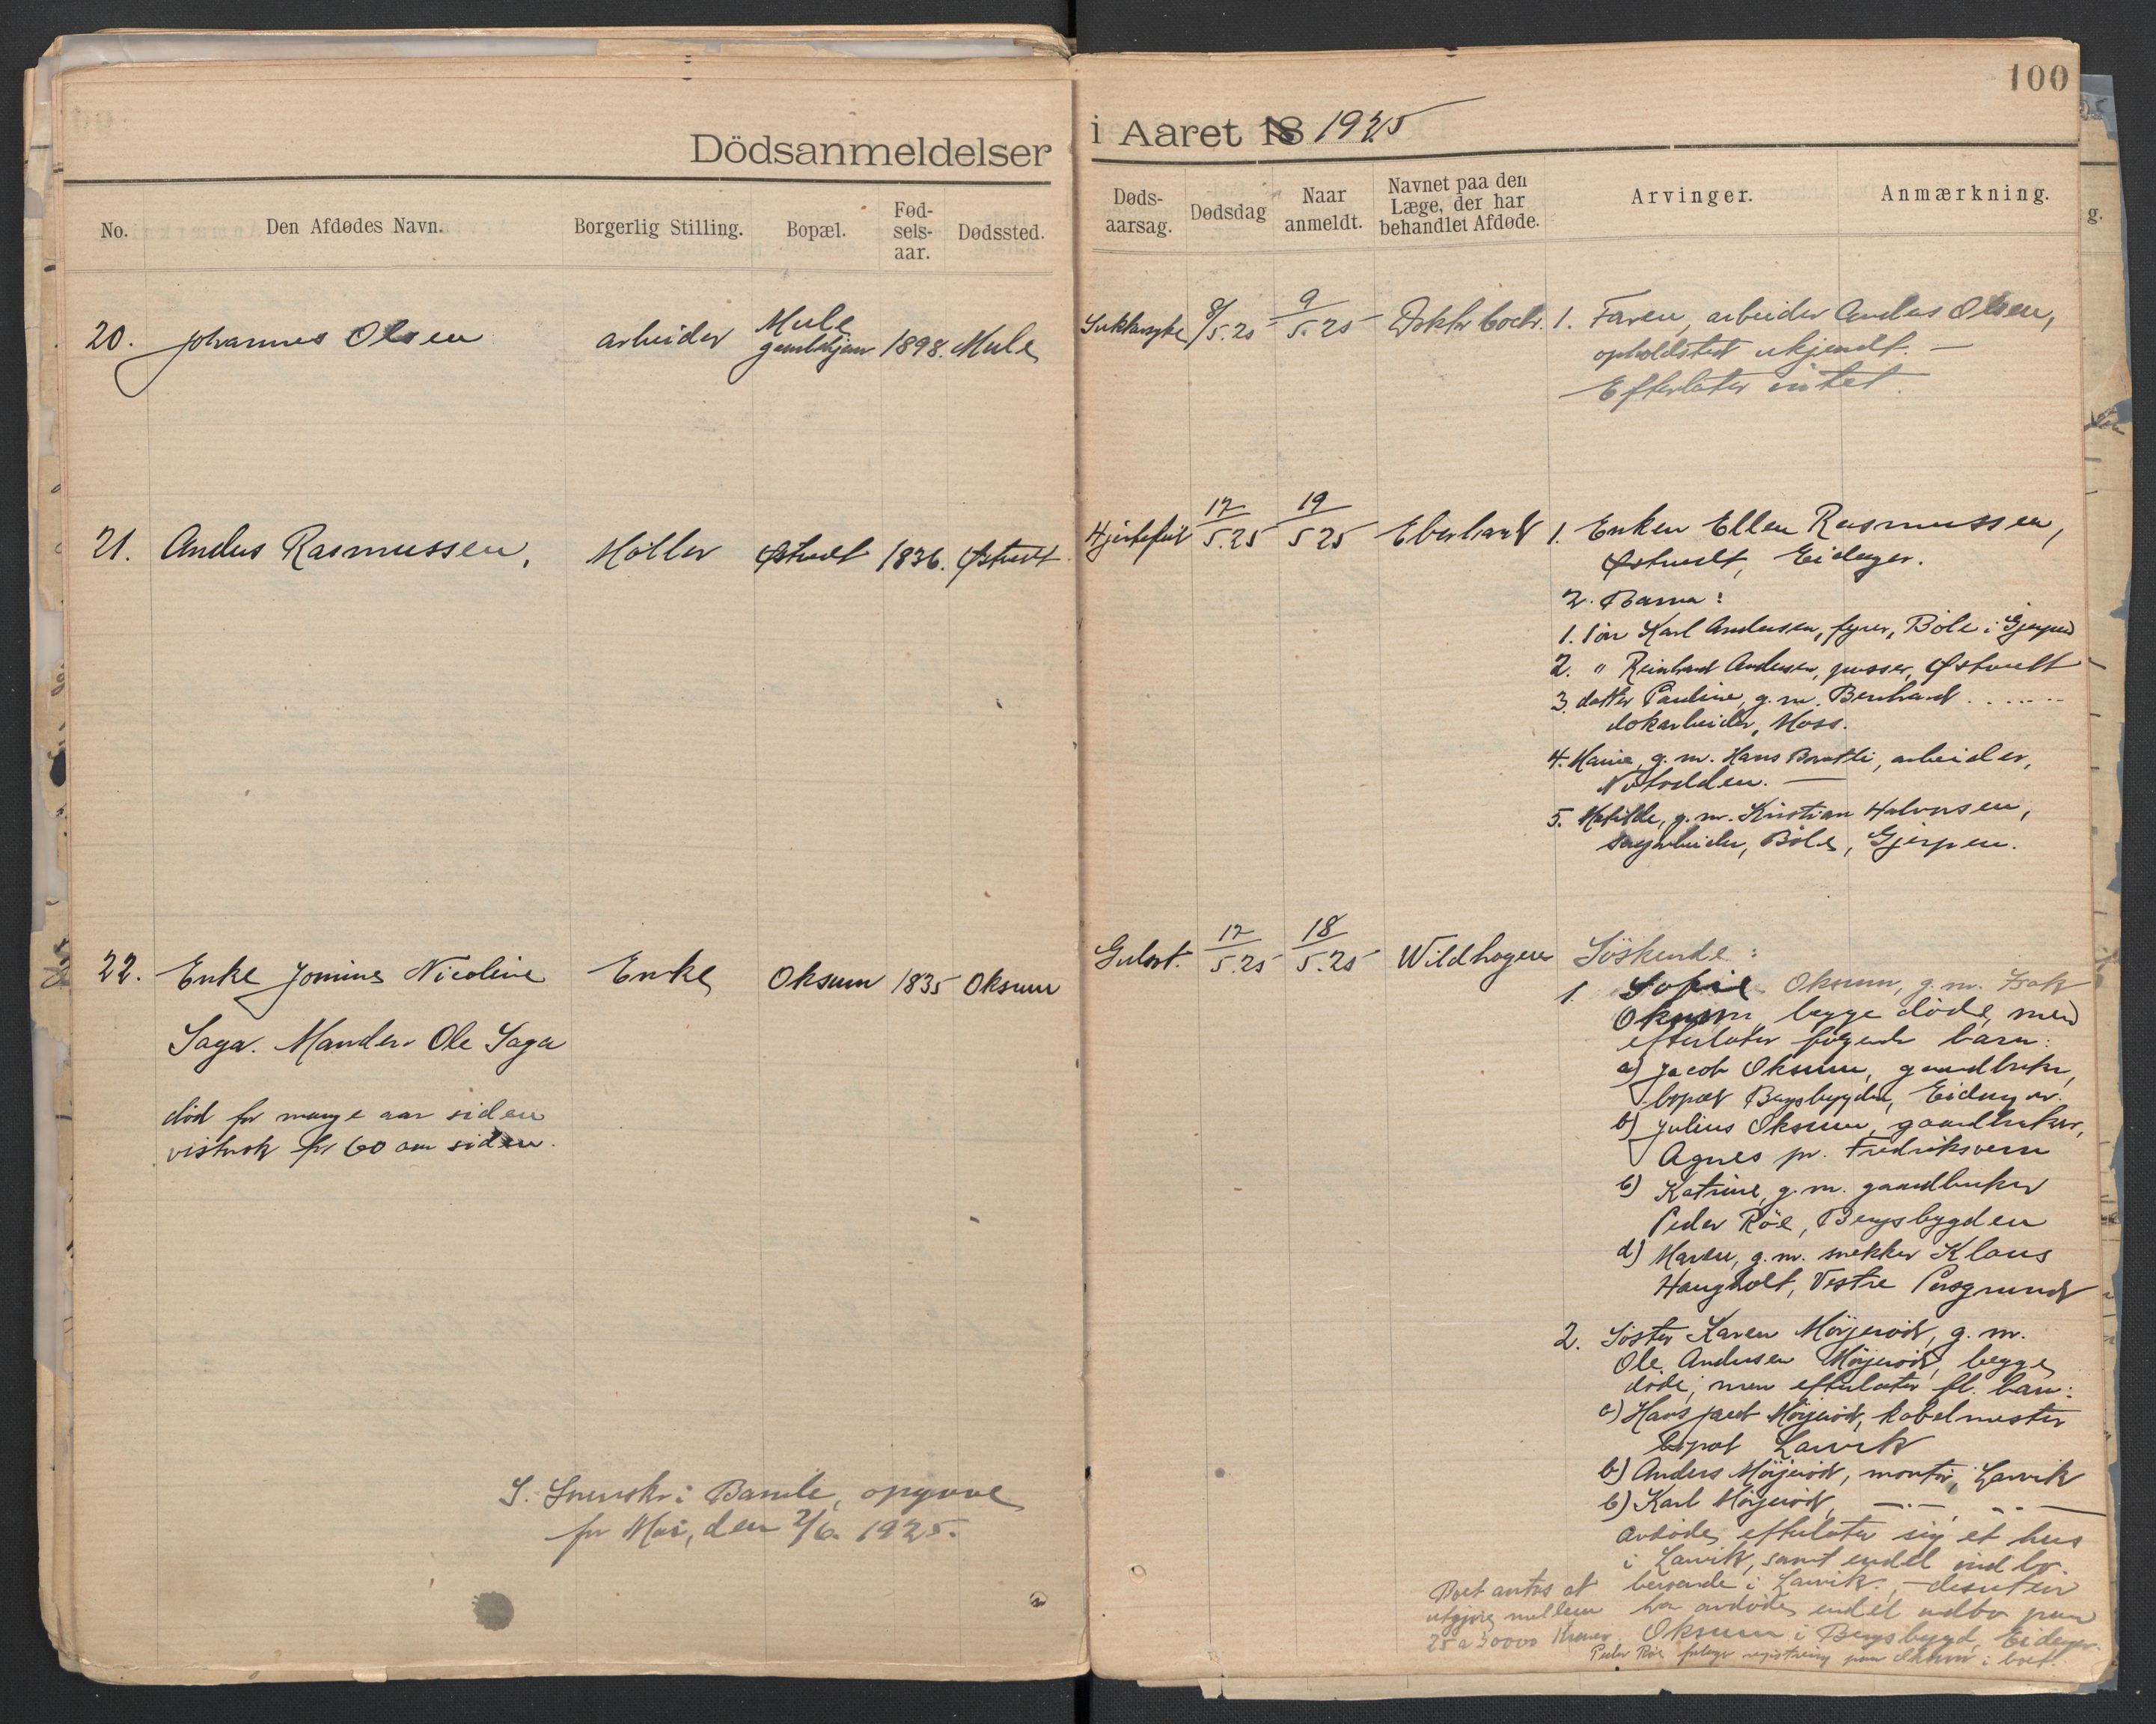 100
Dödsanmeldelser
i Aaret 18 1925
No.
Den Afdødes Navn.
Borgerlig Stilling.
Bopæl.
Fød-
sels-
aar.
Dødssted.
Døds-
aarsag.
Dødsdag
Naar
anmeldt.
Navnet paa den
Læge, der har
behandlet Afdøde.
Arvinger.
Anmærkning.
20. Johannes Olsen arbeider Mule
gamlehjem 1898. Mule
Sukkersyke 8/5.25 9/5.25 Doktor 1. Faren, arbeider Anders Olsen,
opholdsted ukjendt. —
Efterlater intet.
21. Anders Rasmussen, Møller Østvedt 1836. Østvedt
Hjertefeil 17/5.25 19/5 25 Eberhard 1. Enken Ellen Rasmussen,
Østvedt, Eidanger.
2. Barna:
1. Søn Karl Andersen, fyrer, Böle i Gjerpen
2. " Reinhard Andersen, pusser, Østvedt
3. datter Pauline, g. m. Bernhard . . . . . .
dokarbeider, Moss.
4. Marie, g. m. Hans Bratli, arbeider,
Notodden. —
5. Matilde, g. m. Kristian Halvorsen,
sagarbeider, Böle, Gjerpen.
22. Enke Jomine Nicoline
Saga. Manden Ole Saga
død for mange aar siden
vistnok for 60 aar siden.
Enke Oksum 1835 Oksum
Gulsot. 17/5.25 18/5.25 Wildhagen Söskende:
1. Sofie Oksum, g. m. Isak
Oksum, begge döde, men
efterlater følgende barn:
a) Jacob Oksum, gaardbruker,
bopæl Bergsbygden, Eidanger.
b) Julius Oksum, gaardbruker,
Agnes pr. Fredriksvern
c) Katrine, g. m. gaardbruker
Peder Röe, Bergsbygden
d) Maren, g. m. snekker Klaus
Haugholt, Vestre Porsgrund
2. Söster Karen Mörjeröd, g. m.
Ole Andersen Mörjeröd, begge
döde, men efterlater fl. barn:
a) Hans Jacob Mörjeröd, kabelmester
bopæl Larvik
b) Anders Mörjeröd, montör, Larvik
c) Karl Mörjeröd, —"— —"—
Avdöde efterlater sig et hus
i Larvik, samt endel indbo.
beroende i Larvik, — desuten
har avdöde endel indbo paa
Oksum i Bergsbygd, Eidanger.
Peder Röe registrering paa Oksum i boet.
Boet antas at
utgjöre mellem
25 a 30000 Kroner
S. Sorenskr. i Bamle, opgave
for Mai, den 2/6. 1925.